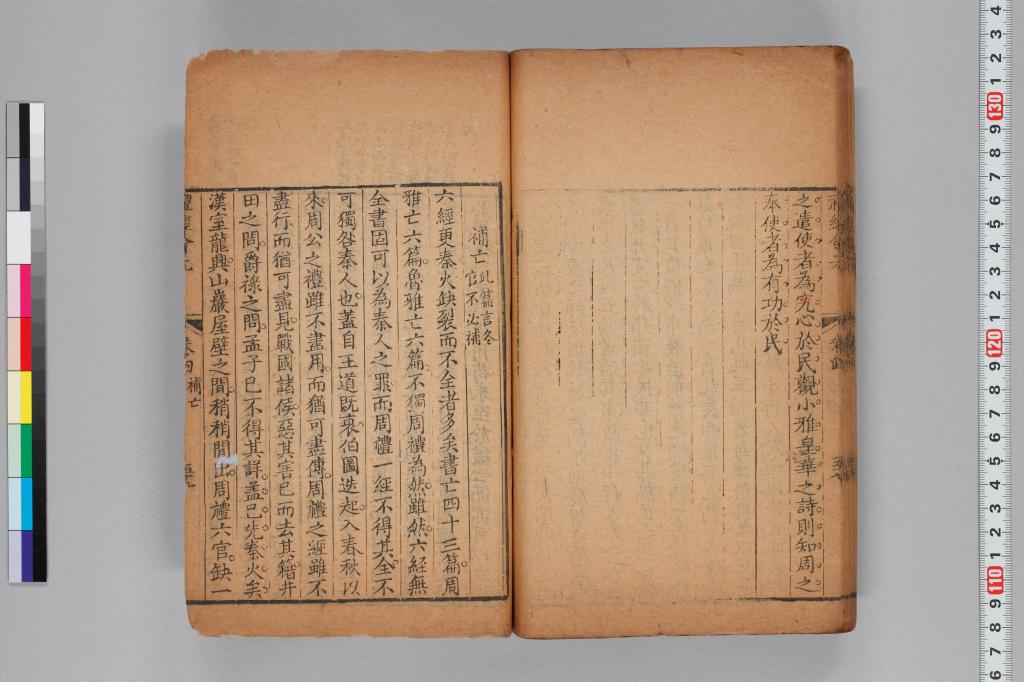 之遣使者為先心於民觀小雅皇華之詩則知周之
奉使者為有功於民
補亡此篇言冬官不必補
六經更秦火缺裂而不全者多矣書亡四十三篇周
雅亡六篇魯雅亡六篇不獨周禮為然雖然六経無
全書固可以為秦人之罪而周禮一經不得其全不
可獨咎秦人也蓋自王道既衰伯圖迭起入春秋以
來周公之禮雖不盡用而猶可盡傳周禮之經雖不
盡行而猶可盡見戰國諸侯惡其害已而去其籍井
田之問爵祿之問孟子已不得其詳孟已先秦火矣
漢室龍興山巖屋壁之間稍稍間出周禮六官缺一
卷四 補亡